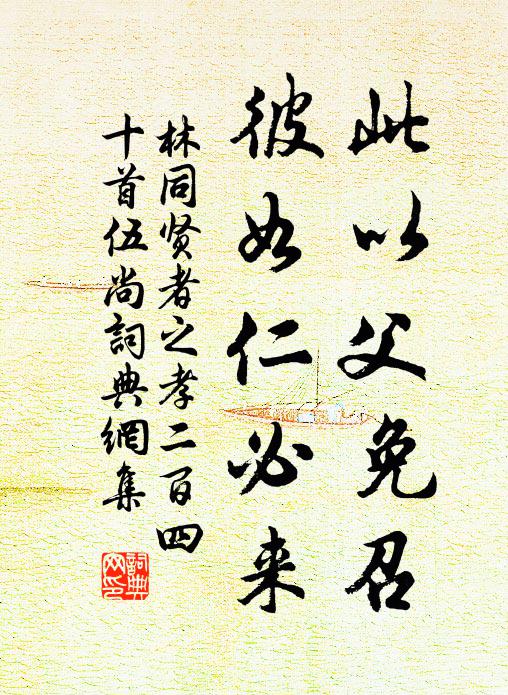 此以父免召
彼如仁必来
林同贤者之孝二百四
十首伍尚詞典網集
詞典
网印